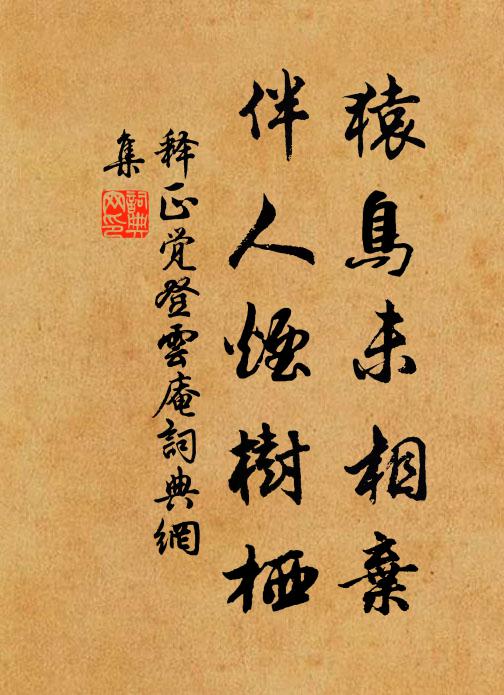 猿鳥未相棄
伴人煙樹栖
释正觉登雲庵詞典網
集
詞典網印